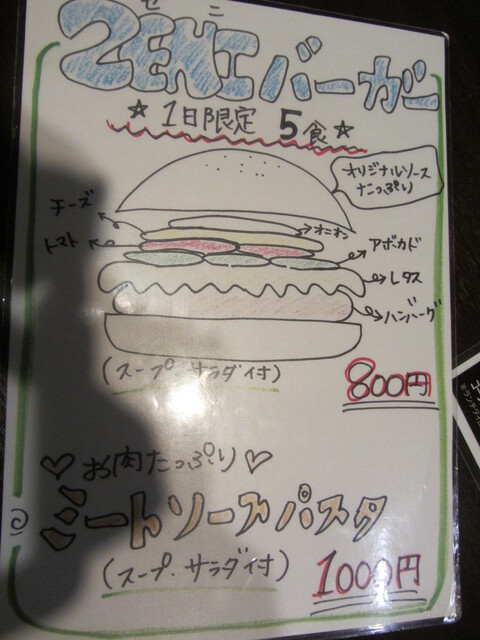 ゼニ
ZENIバーガー
★1日限定 5食★
オリジナルソース
たっぷり
チーズ
オニオン
トマト
アボカド
レタス
ハンバーグ
(スープ・サラダ付)
800円
♡お肉たっぷり♡
ミートソースパスタ
(スープ・サラダ付)
1000円